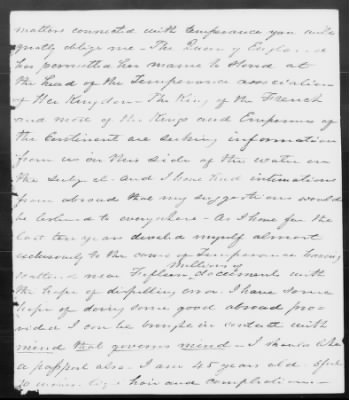 matters connected with temperance you will
greatly oblige me - The Queen of England
has permitted her name to stand at
the head of the Temperance association
of Her Kingdom - The King of the French
and most of the Kings and Emperors of
the Continent are seeking information
from us on this side of the water on
the subject - And I have had intimations
from abroad that my suggestions would
be listened to everywhere - As I have for the
last ten years devoted myself almost
exclusively to the cause of Temperance having
scattered near Fifteen millions of documents with
the hope of dispelling error. I have some
hope of doing some good abroad pro
vided I can be brought in contact with
mind that governs mind - I should like
a passport also - I am 45 years old. 5 feet
10 inches high hair and complection -